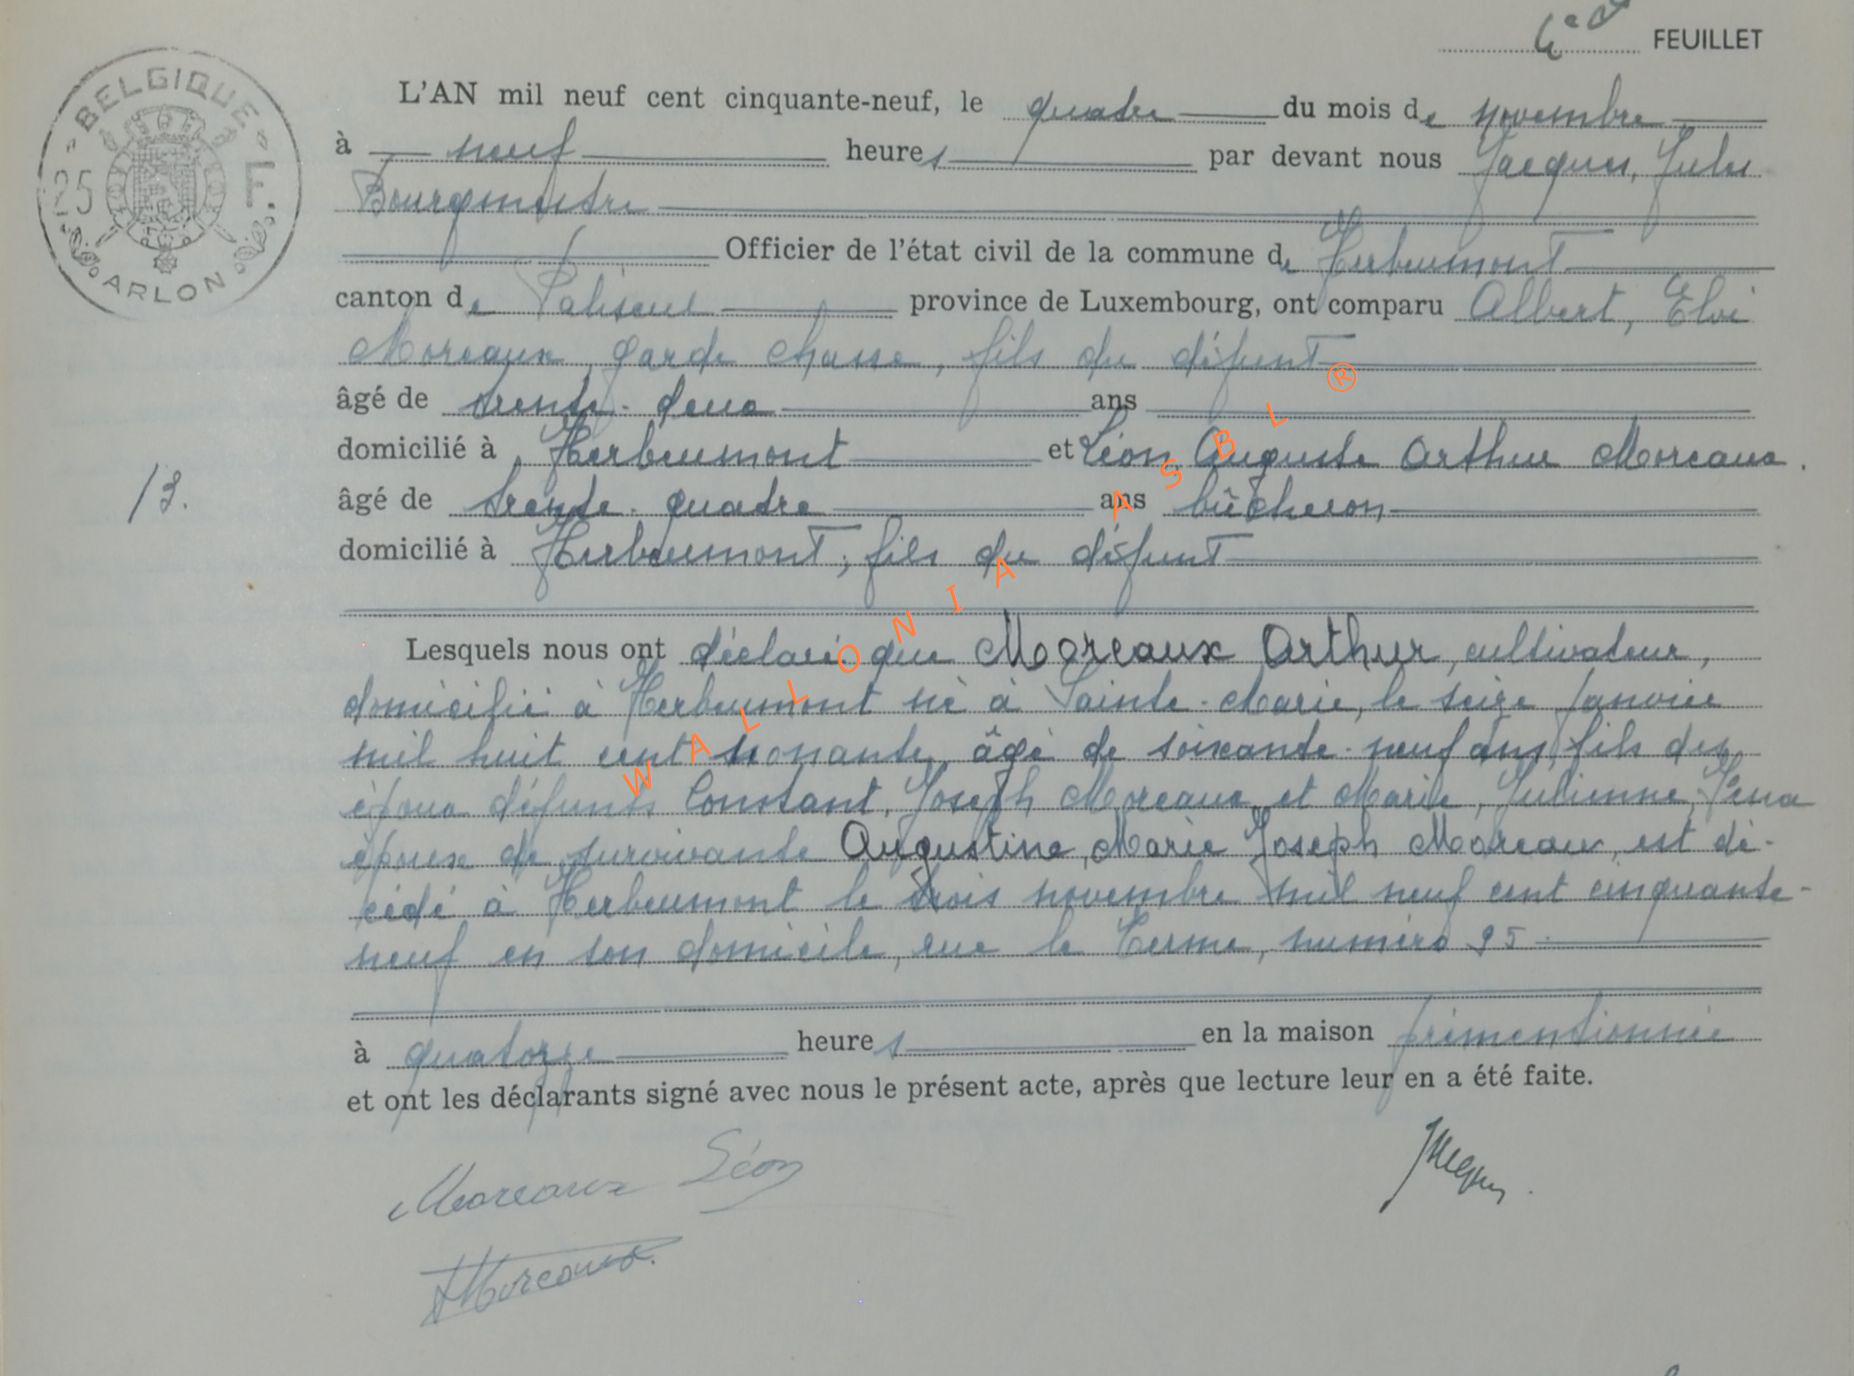 4e FEUILLET
BELGIQUE
25 F.
ARLON
L'AN mil neuf cent cinquante-neuf, le quatre du mois de novembre
à neuf heures par devant nous Jacques, Jules
Bourgmestre
Officier de l'état civil de la commune de Herbeumont
canton de Paliseul province de Luxembourg, ont comparu Albert, Eloi
Moreaux, garde chasse, fils du défunt
âgé de trente-deux ans
domicilié à Herbeumont et Léon, Auguste Arthur Moreaux.
13.
âgé de trente-quatre ans bûcheron
domicilié à Herbeumont, fils du défunt
Lesquels nous ont déclaré que Moreaux Arthur, cultivateur,
domicilié à Herbeumont né à Sainte-Marie, le seize janvier
mil huit cent nonante, âgé de soixante-neuf ans, fils des
époux défunts Constant, Joseph Moreaux et Marie, Julienne,
époux de survivante Augustine, Marie Joseph Moreaux, est dé-
cédé à Herbeumont le trois novembre mil neuf cent cinquante-
neuf en son domicile, rue le Terme, numéro 95
à quatorze heures en la maison prémentionnée
et ont les déclarants signé avec nous le présent acte, après que lecture leur en a été faite.
Moreaux Léon
Jacques.
AMoreaux.
WALLONIA ASBL ®